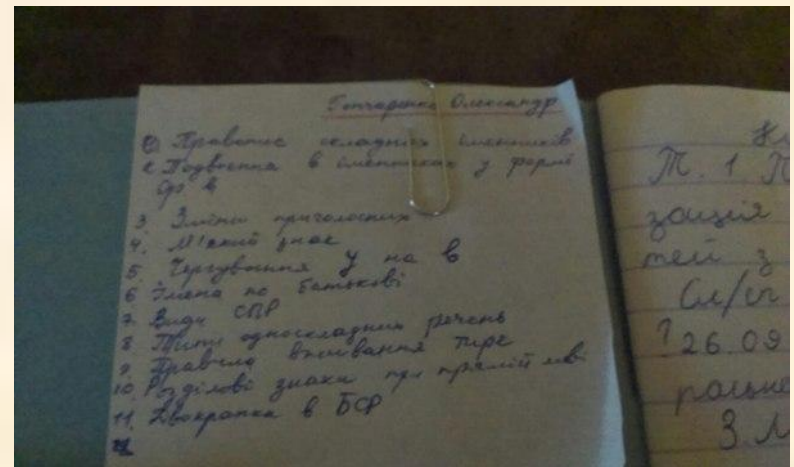 Гончаренко Олександр
1. Правопис складних іменників
2. Подвоєння в іменниках у формі
Ор в
3. Зміни приголосних
4. М'який знак
5. Чергування у на в
6. Імена по батькові
7. Види СПР
8. Типи односкладних речень
9. Правила вживання тире
10. Розділові знаки при прямій мові
11. Двокрапка в БСР
Т. 1 П
зація
тей з
Сл/сп
? 26.09
3. М